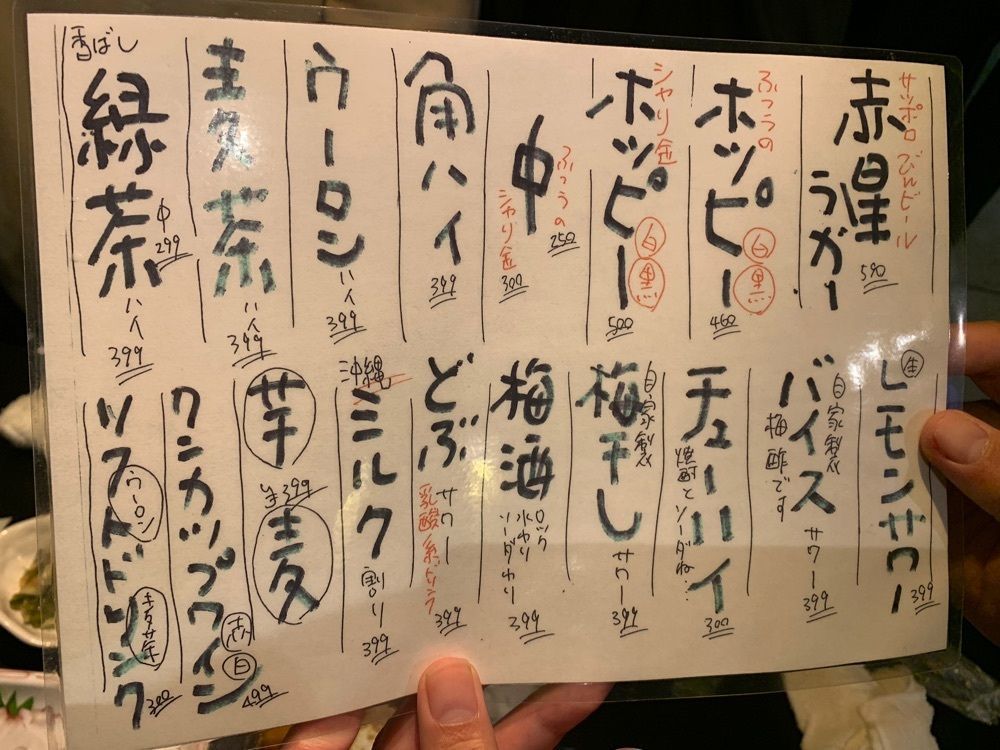 サッポロ びんビール
赤星
ラガー
590
ふつうの
ホッピー
白 黒
460
シャリ金
ホッピー
白 黒
500
中
ふつうの
250
シャリ金
300
角ハイ
399
ウーロン
ハイ
399
麦茶
ハイ
399
香ばし
緑茶
中
299
ハイ
399
生
レモンサワー
399
自家製
バイス
梅酢です
サワー
399
チューハイ
焼酎とソーダね
300
自家製
梅干し
サワー
399
梅酒
ロック
水わり
ソーダわり
399
どぶ
サワー
乳酸系ドリンク
399
沖縄
ミルク
割り
399
芋
¥399
麦
ワンカップワイン
赤 白
499
ソフトドリンク
ウーロン
麦茶
300